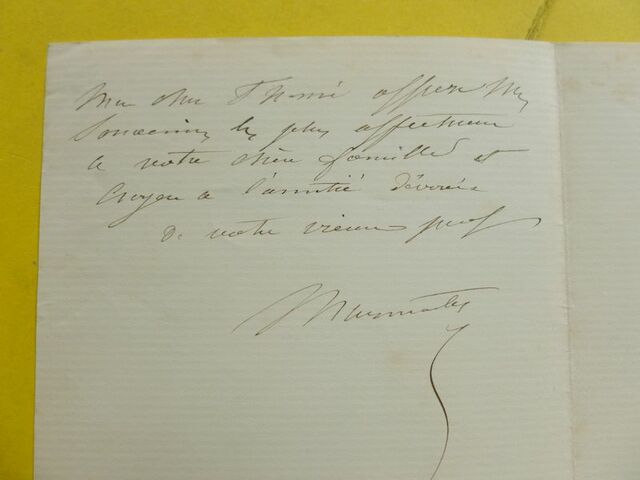 Mon cher Thomé offrez mes
souvenirs les plus affectueux
a votre chère famille et
croyez a l'amitié dévouée
de votre vieux prof
Marmontel